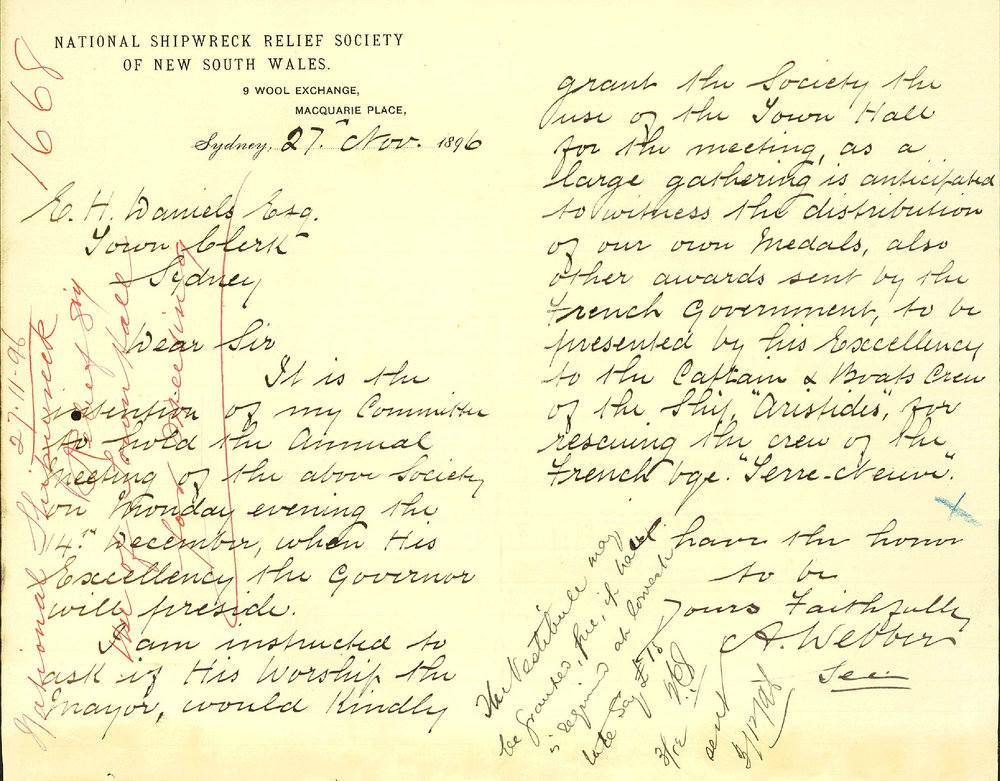 NATIONAL SHIPWRECK RELIEF SOCIETY
OF NEW SOUTH WALES.
9 WOOL EXCHANGE,
MACQUARIE PLACE,
Sydney, 27th Nov. 1896
1668
E. H. Daniels Esq.
Town Clerk
Sydney
Dear Sir
It is the
intention of my Committee
to hold the Annual
Meeting of the above Society
on Monday evening the
14th December, when His
Excellency the Governor
will preside.
I am instructed to
ask if His Worship the
Mayor, would Kindly
grant the Society the
use of the Town Hall
for the meeting, as a
large gathering is anticipated
to witness the distribution
of our own Medals, also
other awards sent by the
French Government, to be
presented by his Excellency
to the Captain & Boats Crew
of the Ship, "Aristides", for
rescuing the crew of the
French bge. "Terre-Neuve".
I have the honor
to be
Yours Faithfully
A. Webber
Sec:
27-11-96
National Shipwreck
Relief Soy
Use of Town Hall
for Meeting
The Vestibule may
be granted, free, if hall
is required at lowest
rate say £10
3/12
sent
3/12/96